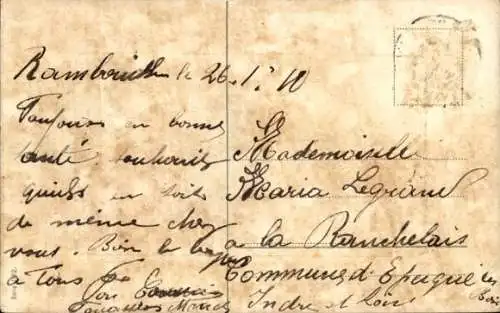 Rambouillet le 26. 1. 10
Toujours en bonne
santé souhaite
qu'il en soit
de même chez
vous. Bien le
à Tous
Mademoiselle
Maria Legrand
a la Ranchelais
Commune d'Epeigné les
Bois
Indre et Loire